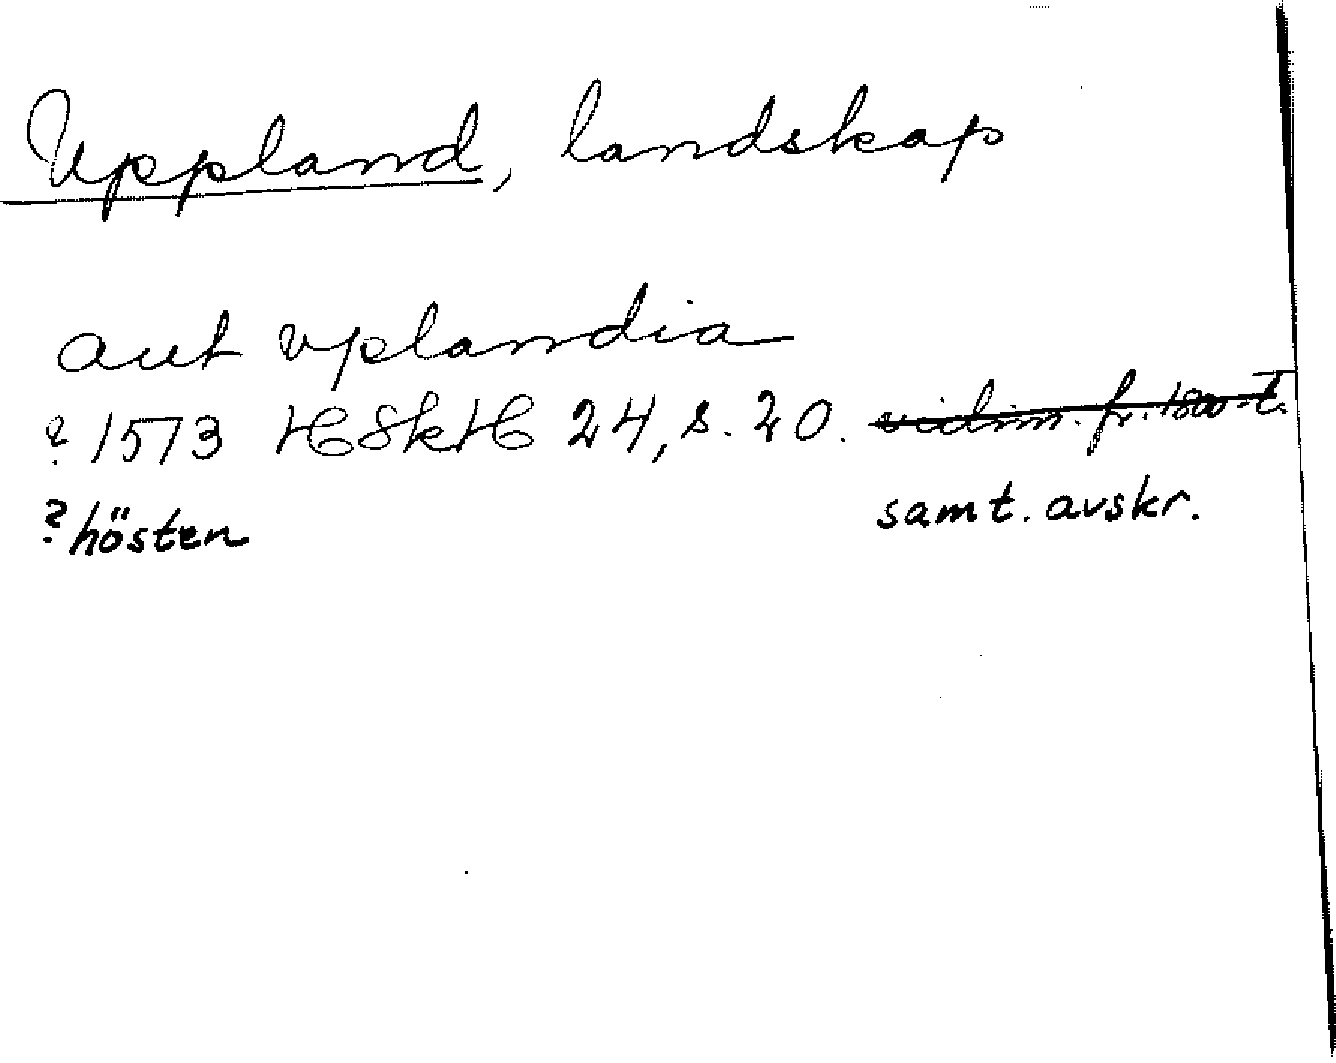 Uppland, landskap
aut vplandia
? 1573 HSkH 24, s. 20. vidim. fr. 1800-t.
? hösten samt. avskr.